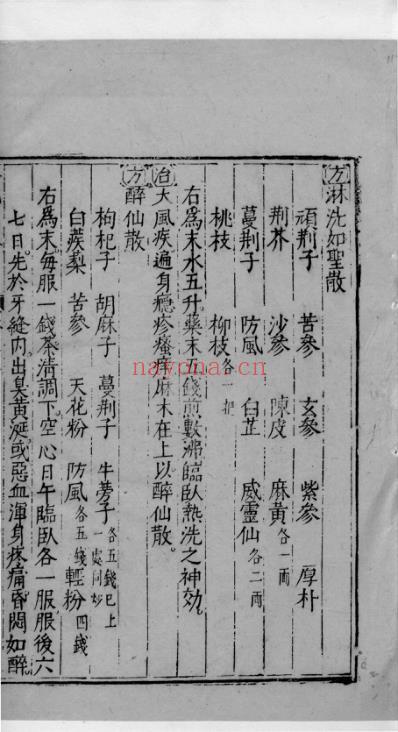 方淋洗如聖散
頑荆子 苦參 玄參 紫參 厚朴
荆芥 沙參 陳皮 麻黃各一兩
蔓荆子 防風 白芷 威靈仙各二兩
桃枝 柳枝各一把
右爲末水五升藥末五錢煎數沸臨臥熱洗之神効
治大風疾遍身癮疹瘙痒麻木在上以醉仙散
方醉仙散
枸杞子 胡麻子 蔓荆子 牛蒡子各五錢已上一處同炒
白蒺梨 苦參 天花粉 防風各五錢 輕粉四錢
右爲末每服一錢茶清調下空心日午臨臥各一服服後六
七日先於牙縫內出臭黃涎或惡血渾身疼痛昏悶如醉
nayona.cn